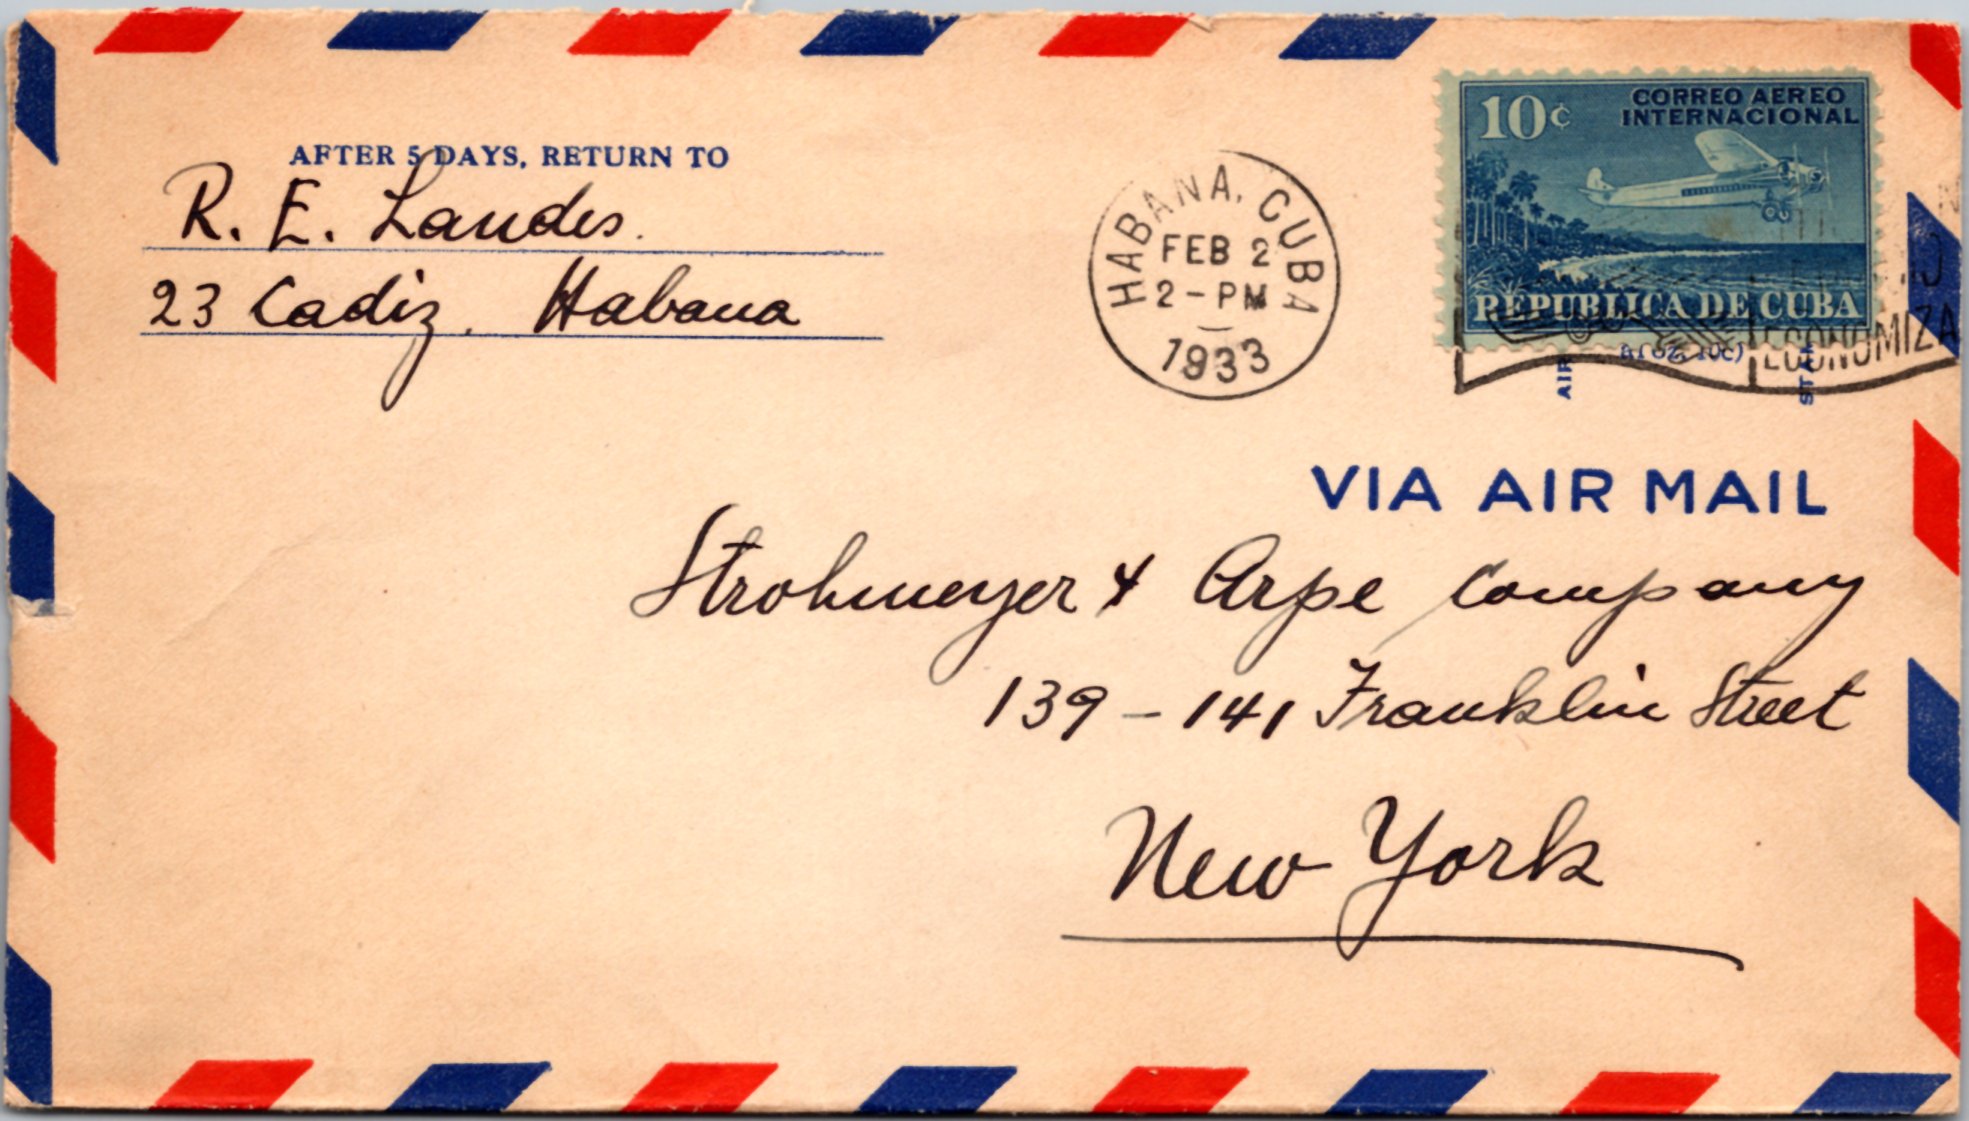 AFTER 5 DAYS, RETURN TO
R. E. Landes.
23 Cadiz, Habana
HABANA, CUBA
FEB 2
2-PM
1933
10¢
CORREO AEREO
INTERNACIONAL
REPUBLICA DE CUBA
ECONOMIZA
10c)
AIR
VIA AIR MAIL
Strohmeyer & Arpe Company
139-141 Franklin Street
New York